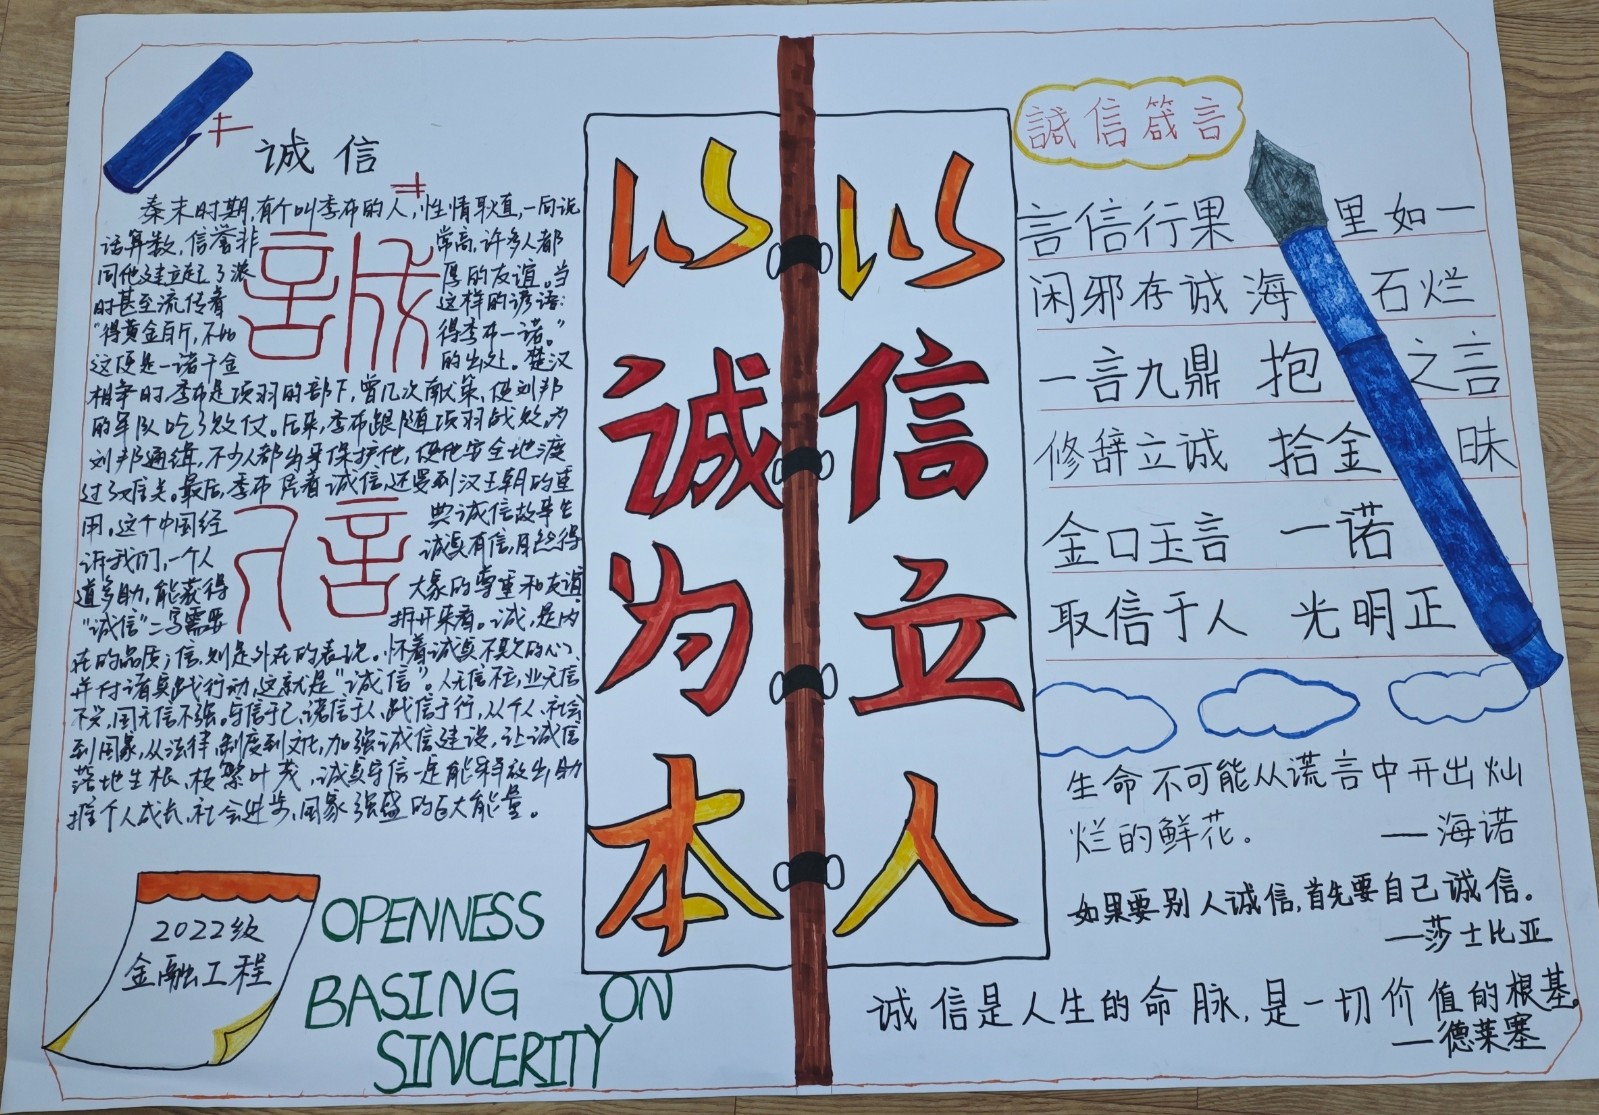 诚信
秦末时期,有个叫季布的人,性情耿直,一向说
话算数,信誉非常高,许多人都
同他建立起了深厚的友谊。当
时甚至流传着这样的谚语:
“得黄金百斤,不如得季布一诺。”
这便是一诺千金的出处。楚汉
相争时,季布是项羽的部下,曾几次献策,使刘邦
的军队吃了败仗。后来,季布跟随项羽战败,为
刘邦通缉,不少人都出手保护他,使他安全地渡
过了难关。最后,季布凭着诚信,还受到汉王朝的重
用。这个中国经典诚信故事告
诉我们,一个人诚真有信,自然得
道多助,能获得大家的尊重和友谊
“诚信”二字需要拆开来看。诚,是内
在的品质;信,则是外在的表现。怀着诚真不欺的心、
并付诸实践行动,这就是“诚信”。人无信不立,业无信
不兴,国无信不强。守信于己,诸信于人,践信于行,从个人、社会
到国家,从法律、制度到文化,加强诚信建设,让诚信
落地生根、枝繁叶茂,诚真守信一定能释放出助
推个人成长、社会进步、国家强盛的巨大能量。
誠
信
2022级
金融工程
OPENNESS
BASING ON
SINCERITY
以诚为本
以信立人
誠信箴言
言信行果 里如一
闲邪存诚 海 石烂
一言九鼎 抱 之言
修辞立诚 拾金 昧
金口玉言 一诺
取信于人 光明正
生命不可能从谎言中开出灿
烂的鲜花。 —海诺
如果要别人诚信,首先要自己诚信。
—莎士比亚
诚信是人生的命脉,是一切价值的根基。
—德莱塞